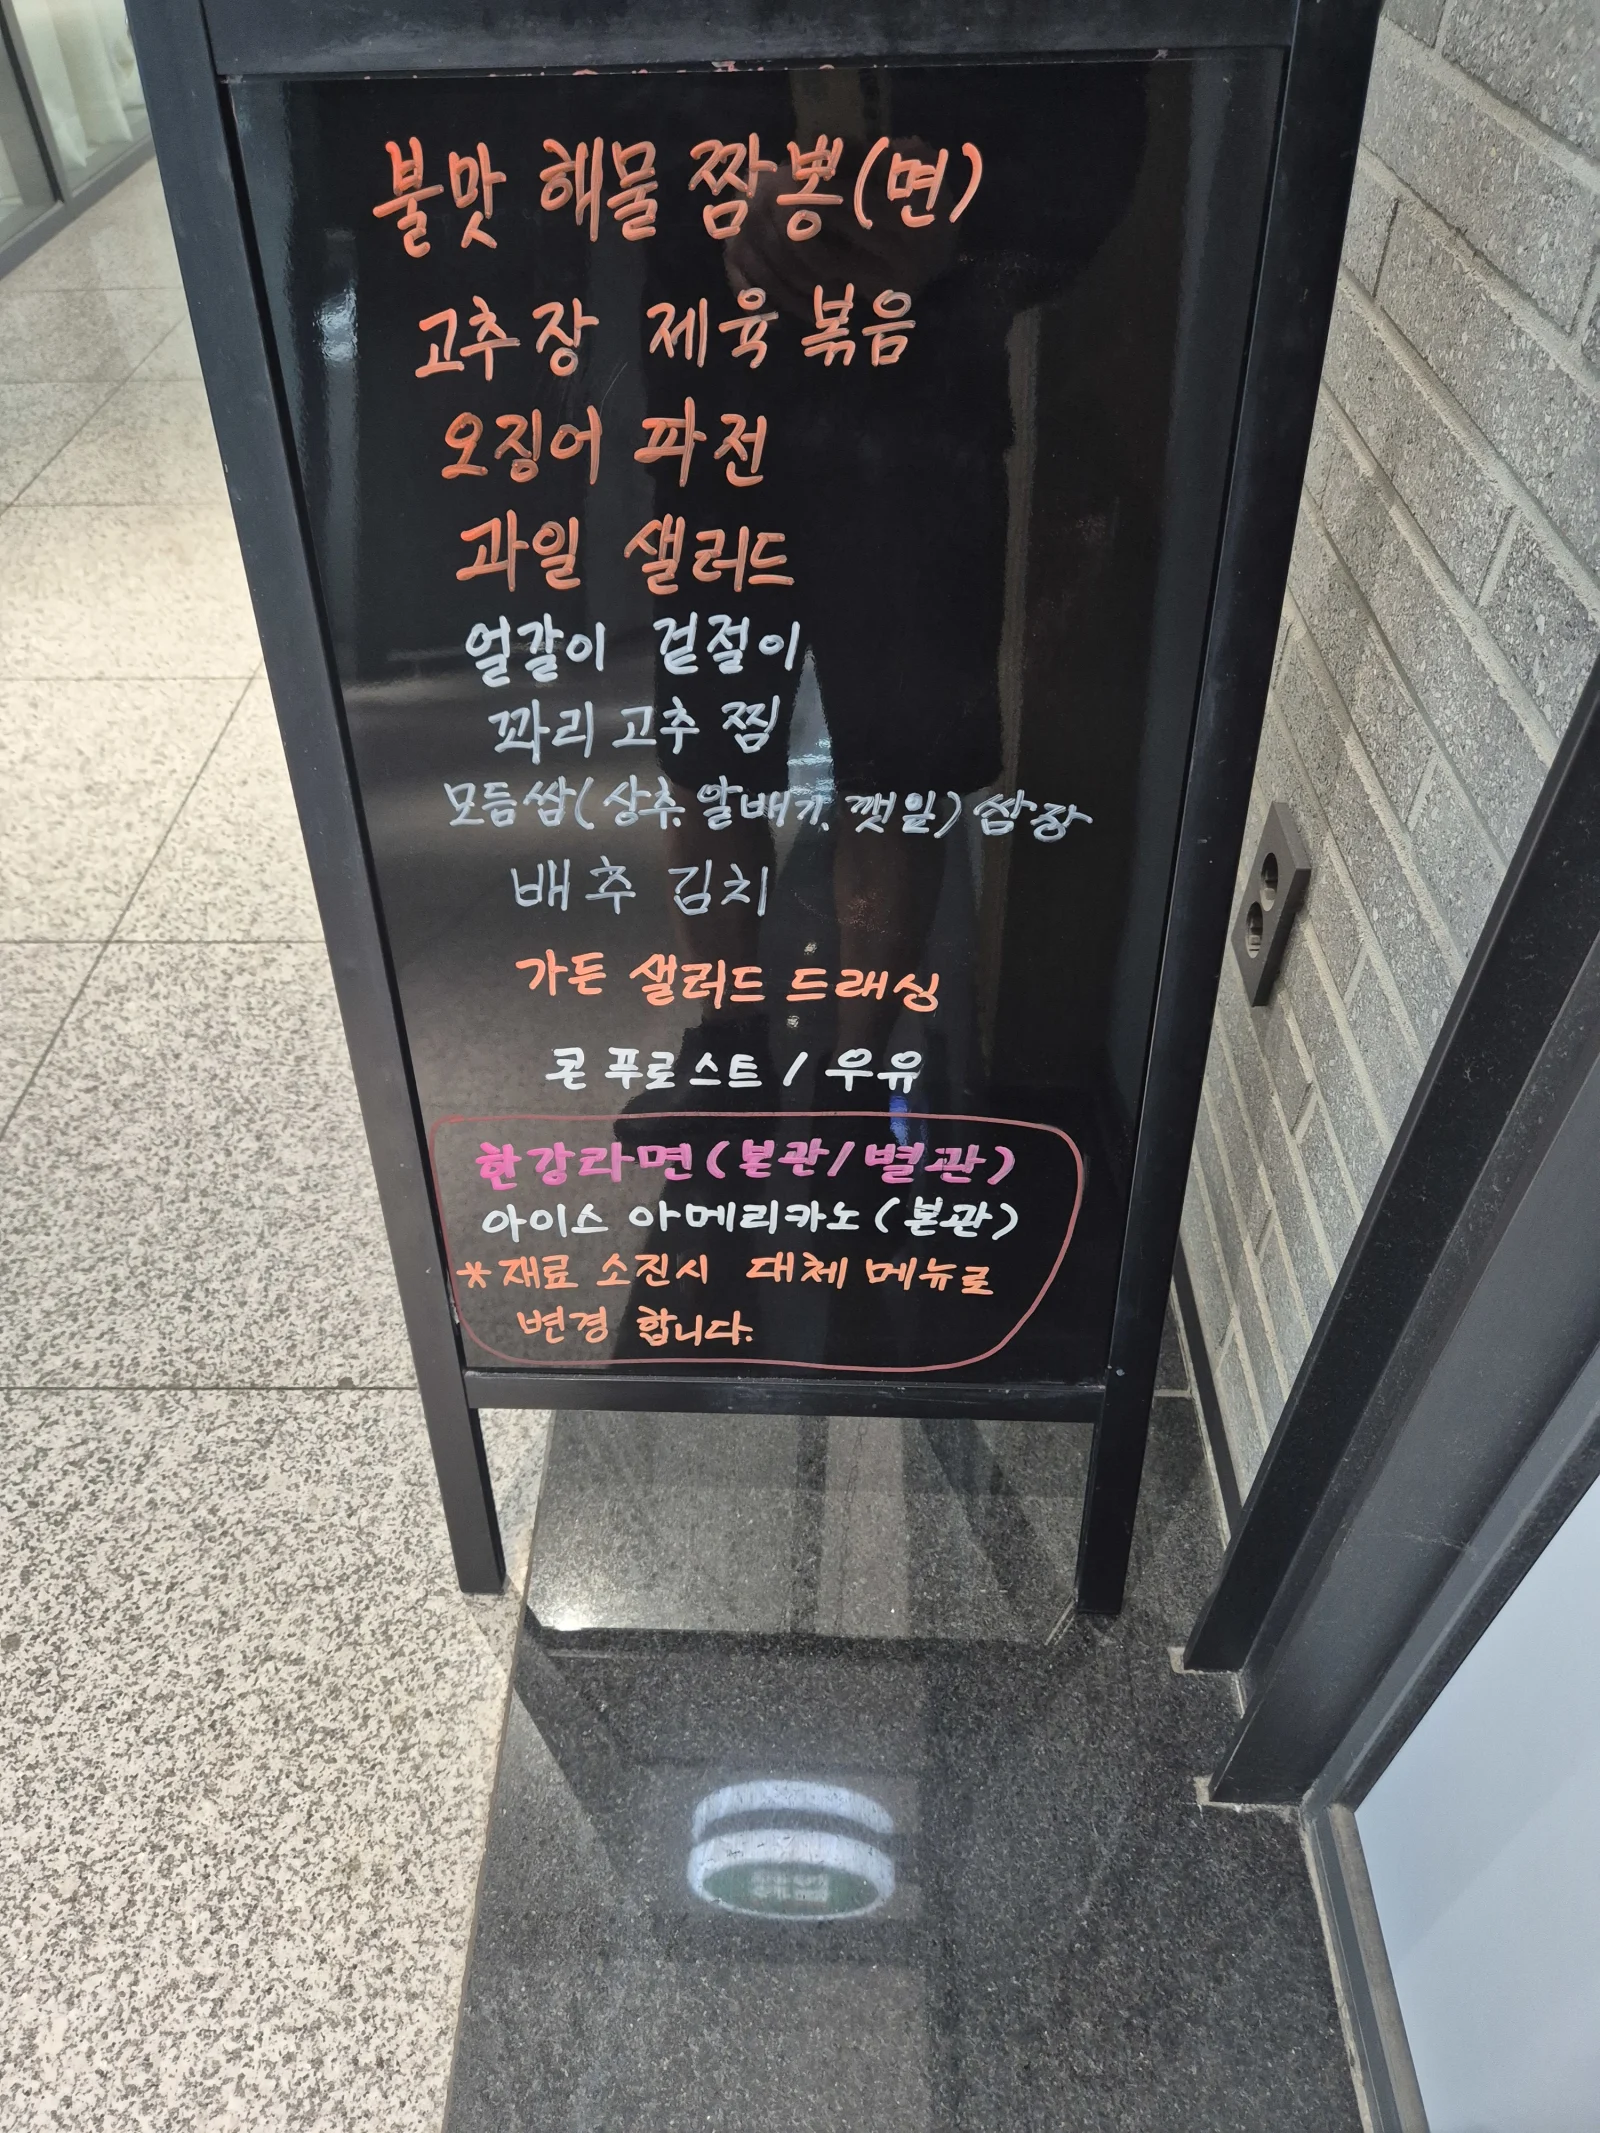 불맛 해물 짬뽕(면)
고추장 제육볶음
오징어 파전
과일 샐러드
얼갈이 겉절이
꽈리고추찜
모듬쌈(상추. 알배기. 깻잎) 쌈장
배추 김치
가든 샐러드 드래싱
콘푸로스트 / 우유
한강라면(본관/별관)
아이스 아메리카노(본관)
*재료 소진시 대체 메뉴로
변경 합니다.